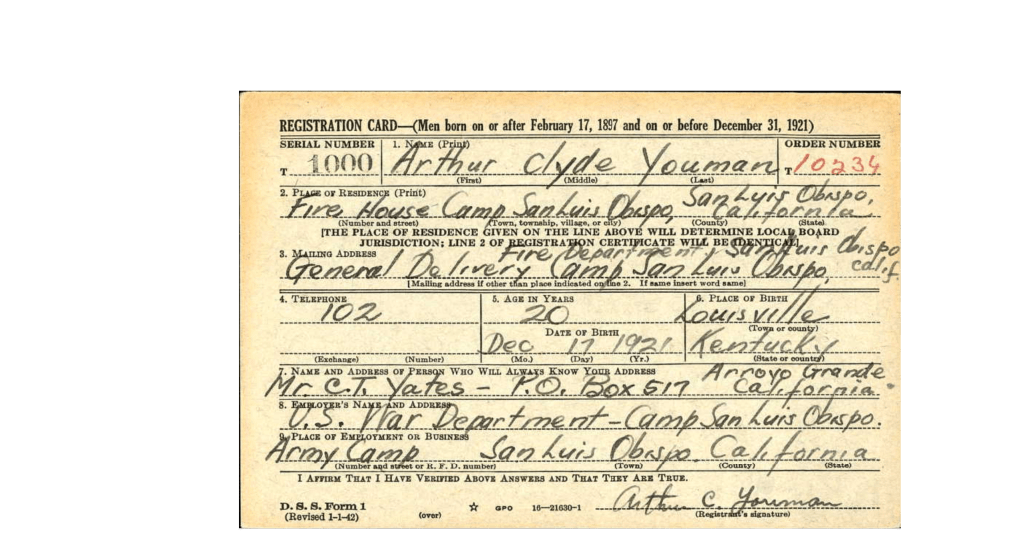 REGISTRATION CARD—(Men born on or after February 17, 1897 and on or before December 31, 1921)
SERIAL NUMBER 1. NAME (Print) ORDER NUMBER
T 1000 Arthur Clyde Youman T 10234
(First) (Middle) (Last)
2. PLACE OF RESIDENCE (Print) San Luis Obispo,
Fire House Camp San Luis Obispo, California
(Number and street) (Town, township, village, or city) (County) (State)
[THE PLACE OF RESIDENCE GIVEN ON THE LINE ABOVE WILL DETERMINE LOCAL BOARD
JURISDICTION; LINE 2 OF REGISTRATION CERTIFICATE WILL BE IDENTICAL]
Fire Department, San Luis Obispo
3. MAILING ADDRESS
General Delivery Camp San Luis Obispo, Calif.
[Mailing address if other than place indicated on line 2. If same insert word same]
4. TELEPHONE 5. AGE IN YEARS 6. PLACE OF BIRTH
102 20 Louisville
DATE OF BIRTH (Town or county)
Dec 17 1921 Kentucky
(Exchange) (Number) (Mo.) (Day) (Yr.) (State or country)
7. NAME AND ADDRESS OF PERSON WHO WILL ALWAYS KNOW YOUR ADDRESS Arroyo Grande
Mr. C.T. Yates – P.O. Box 517 California
8. EMPLOYER'S NAME AND ADDRESS
U.S. War Department – Camp San Luis Obispo.
9. PLACE OF EMPLOYMENT OR BUSINESS
Army Camp San Luis Obispo California
(Number and street or R. F. D. number) (Town) (County) (State)
I AFFIRM THAT I HAVE VERIFIED ABOVE ANSWERS AND THAT THEY ARE TRUE.
D. S. S. Form 1 Arthur C. Youman
(Revised 1-1-42) (over) ☆ GPO 16—21630-1 (Registrant's signature)